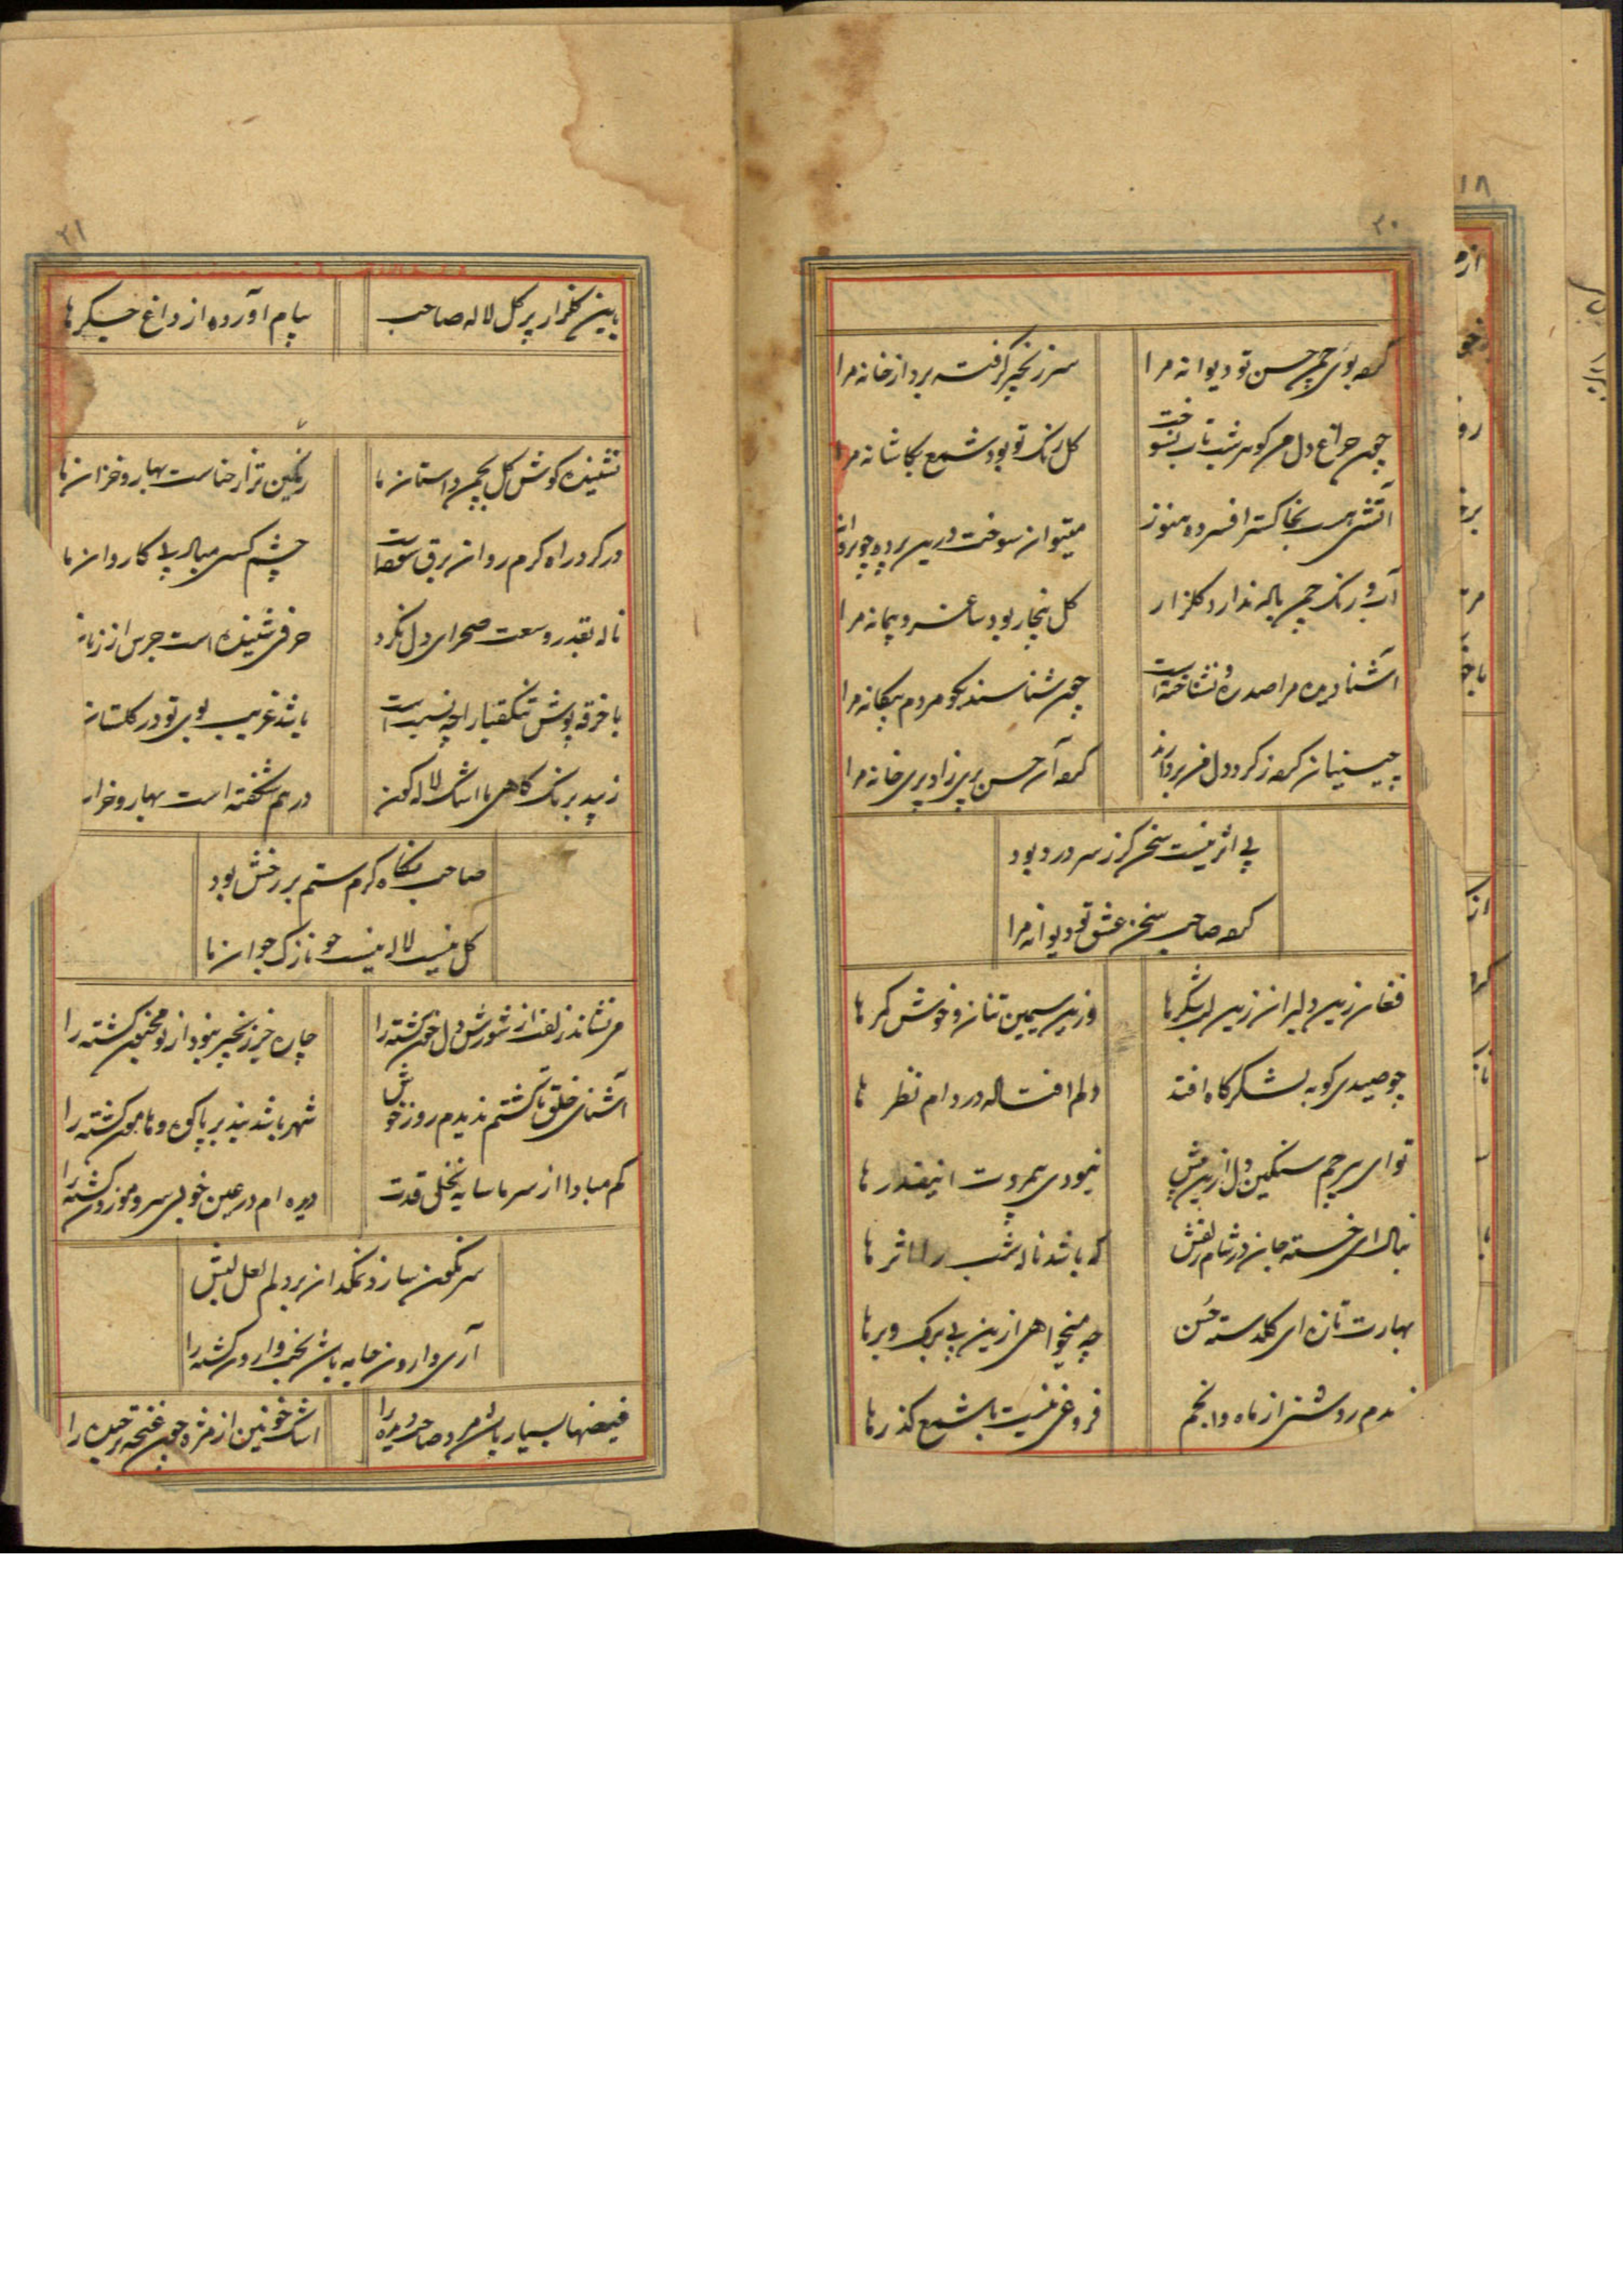 ۲۰
کرد بوی چمن حسن تو دیوانه مرا
سر زنجیر گرفت برد از خانه مرا
چون چراغ دل من گوهر شب تاب نسوخت
گل رنگ تو بود شمع بکاشانه مرا
آتشی هست بخاکستر افسرده هنوز
میتوان سوخت درین پرده چو پروانه
آب و رنگ چمن باله ندارد گلزار
گل بیخار بود ساغر و پیمانه مرا
آشنا دیده مرا صدره و نشناخته است
چون شناسند بگو مردم بیگانه مرا
چینیان کرد ز گرد دل من پردازند
کرد آن حسن پریزاد پری خانه مرا
بی اثر نیست سخن گر ز سر درد بود
کرد صاحب سخن عشق تو دیوانه مرا
فغان زین دلبران زین لب شکرها
وزین سیمین تنان و خوش کمرها
چو صیدی کو به لشکرگاه افتد
دلم افتاده در دام نظر ها
تو ای بیرحم سنگین دل ازین پیش
نبودی بیمروت اینقدر ها
بنال ای خسته جان در شام زلفش
که باشد ناله شب را اثر ها
بهارت تازه ای گلدسته حسن
چه میخواهی ازین بی برگ و برها
ندیدم روشنی از ماه و انجم
فروغی نیست با شمع گذرها
۲۱
باین گلزار پر گل لاله صاحب
پیام آورده از داغ جگرها
نشنیده گوش گل بچمن داستان ما
رنگین تر از حناست بهار و خزان ما
در گرد راه گرم روان برق سوخته است
چشم کسی مباد پی کاروان ما
ناله بقدر وسعت صحرای دل نکرد
حرفی شنیده است جرس از زبان
با خرقه پوش تنگ قبا را چه نسبت است
باشد غریب بوی تو در گلستان
زیبد برنگ کاهی ما اشک لاله گون
در هم شکفته است بهار و خزان
صاحب نگاه گرم ستم بر رخش بود
گل نیست لاله نیست چو نازک جوان ما
می نشاند زلفت از شورش دل خون گشته را
چاره جز زنجیر نبود از تو مجنون گشته را
آشنای خلق تا گشتم ندیدم روز خوش
شهر باشد بند بر پا کوه و هامون گشته را
کم مبادا از سر ما سایه نخل قدت
دیده ام در عین خوبی سرو موزون گشته را
سرنگون سازد نمکدان بر دلم لعل لبش
آری وارون جامه باشد بخت وارون گشته را
فیضها بسیار باشد مرد صاحب دیده را
اشک خونین از مژه چون غنچه بر چیده را